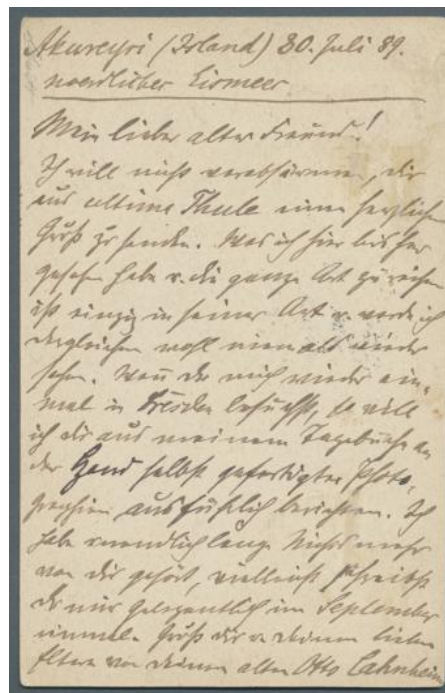 Akureyri (Island) 30. Juli 89.
noerdlicher Eismeer
Mein lieber alter Freund!
Ich will nicht verabsäumen, dir
aus ultima Thule einen herzlichen
Gruß zu senden. Was ich hier bisher
gesehen habe u. die ganze Art zu reisen
ist einzig in seiner Art u. werde ich
dergleichen wohl niemals wieder
sehen. Wenn du mich wieder ein-
mal in Dresden besuchst, so will
ich dir aus meinem Tagebuche an
der Hand selbst gefertigter Photo-
graphien ausführlich berichten. Ich
habe unendlich lange Nichts mehr
von dir gehört, vielleicht schreibst
du mir gelegentlich im September
einmal. Gruß dir u. deinen lieben
Eltern von deinem alten Otto Cahnheim